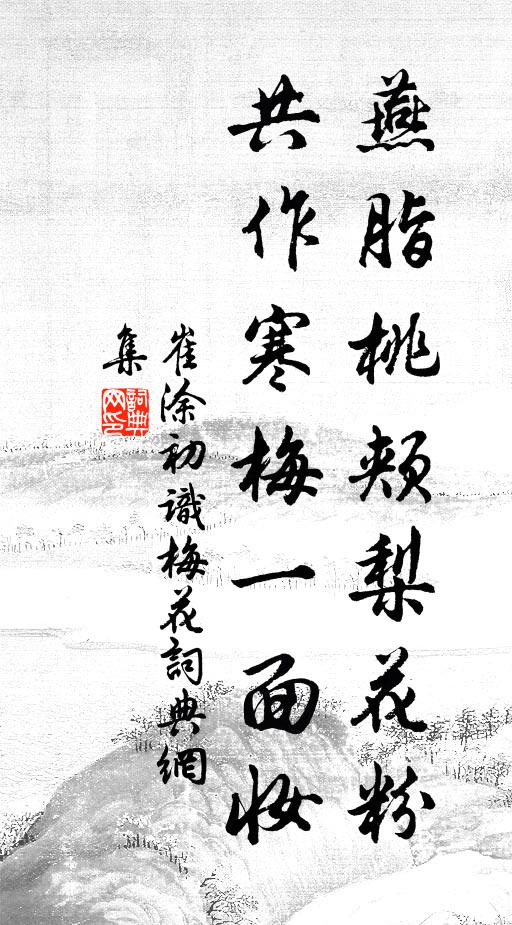 燕脂桃頰梨花粉
共作寒梅一面妝
崔涂初識梅花詞典網
集
詞典网印